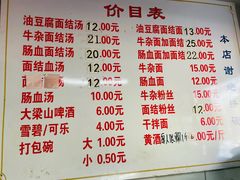 价目表
油豆腐面结汤 12.00元
牛杂面结汤 20.00元
肠血面结汤 20.00元
面结血汤 12.00元
面结汤 12.00元
肠血汤 10.00元
大梁山啤酒 6.00元
雪碧/可乐 4.00元
打包碗 大 1.00元
小 0.50元
油豆腐面结面 13.00元
牛杂面加面结 25.00元
肠血面加面结 22.00元
牛杂面 15.00元
肠血面 15.00元
牛杂粉丝 15.00元
面结粉丝 12.00元
干拌面 6.00元
黄酒 .00元/斤
本店谢